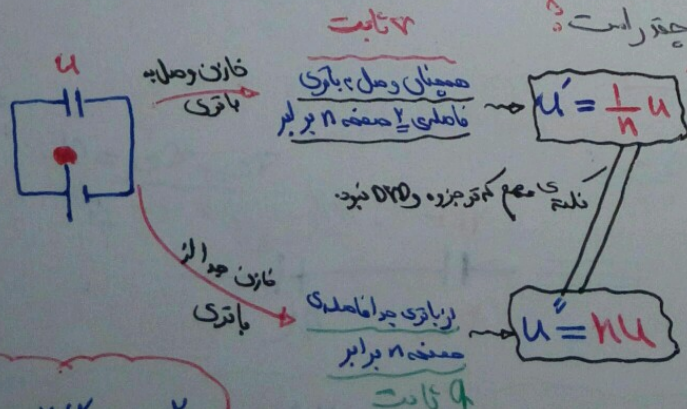 چقدر است؟
V ثابت
U
خازن وصل به
باتری
همچنان وصل به باتری
فاصله‌ی ۲ صفحه n برابر
U' = 1/n U
نکته‌ی مهم که تو جزوه و DVD نبود.
خازن جدا از
باتری
از باتری جدا فاصله‌ی
صفحه n برابر
q ثابت
U'' = nU